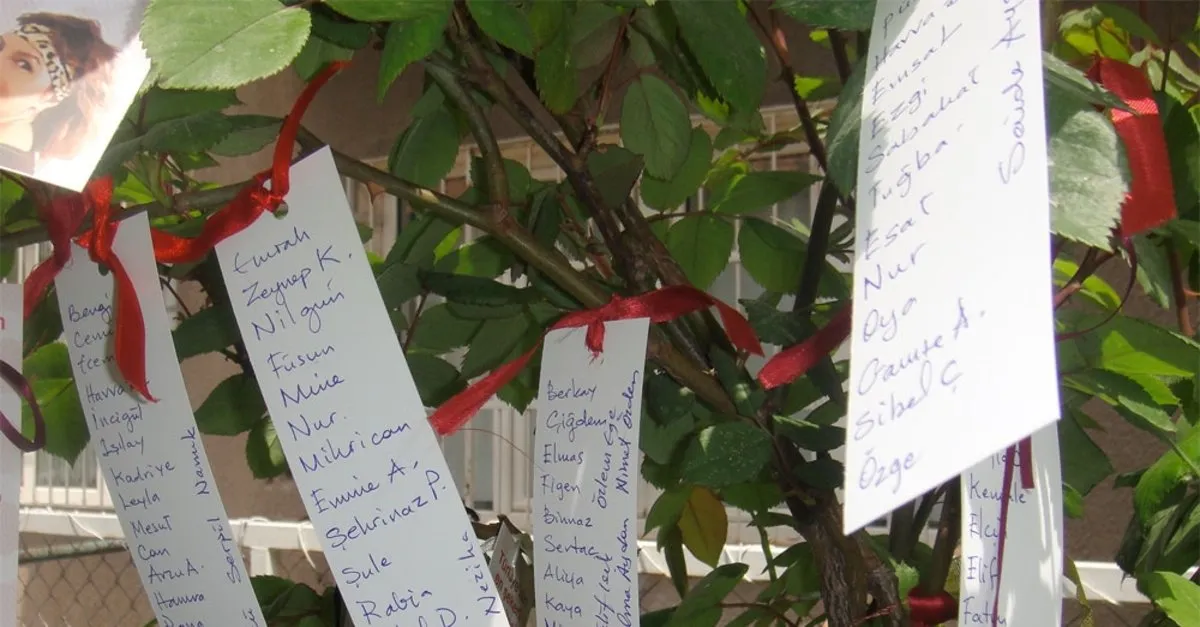 Bengi
Havva
İncigül
Işılay
Kadriye
Leyla
Mesut
Can
Arzu A.
Hamra
Namık
Serpil
Emrah
Zeynep K.
Nilgün
Füsun
Mine
Nur.
Mihrican
Emine A.
Şehrinaz P.
Şule
Rabia
Nezihe
Berkay
Çiğdem
Elmas
Figen
Binnaz
Sertaç
Aliya
Kaya
Özlem Ege
Nimet Özden
Aydan
Havva
Ezgi
Sabahat
Tuğba
Esat
Nur
Oya
Gamze A.
Sibel Ç
Özge
Saide
Elif